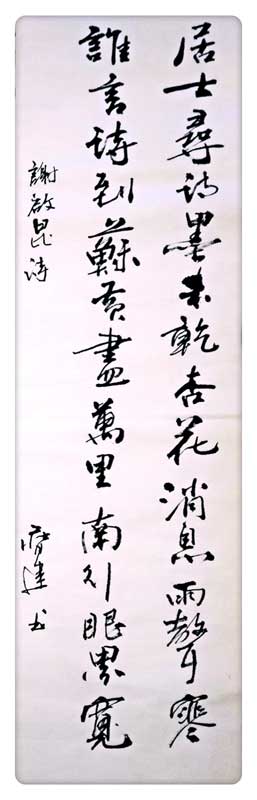 居士尋詩墨未乾杏花消息雨聲寒
誰言詩到蘇黃盡萬里南行眼界寬
謝啟昆詩
建书